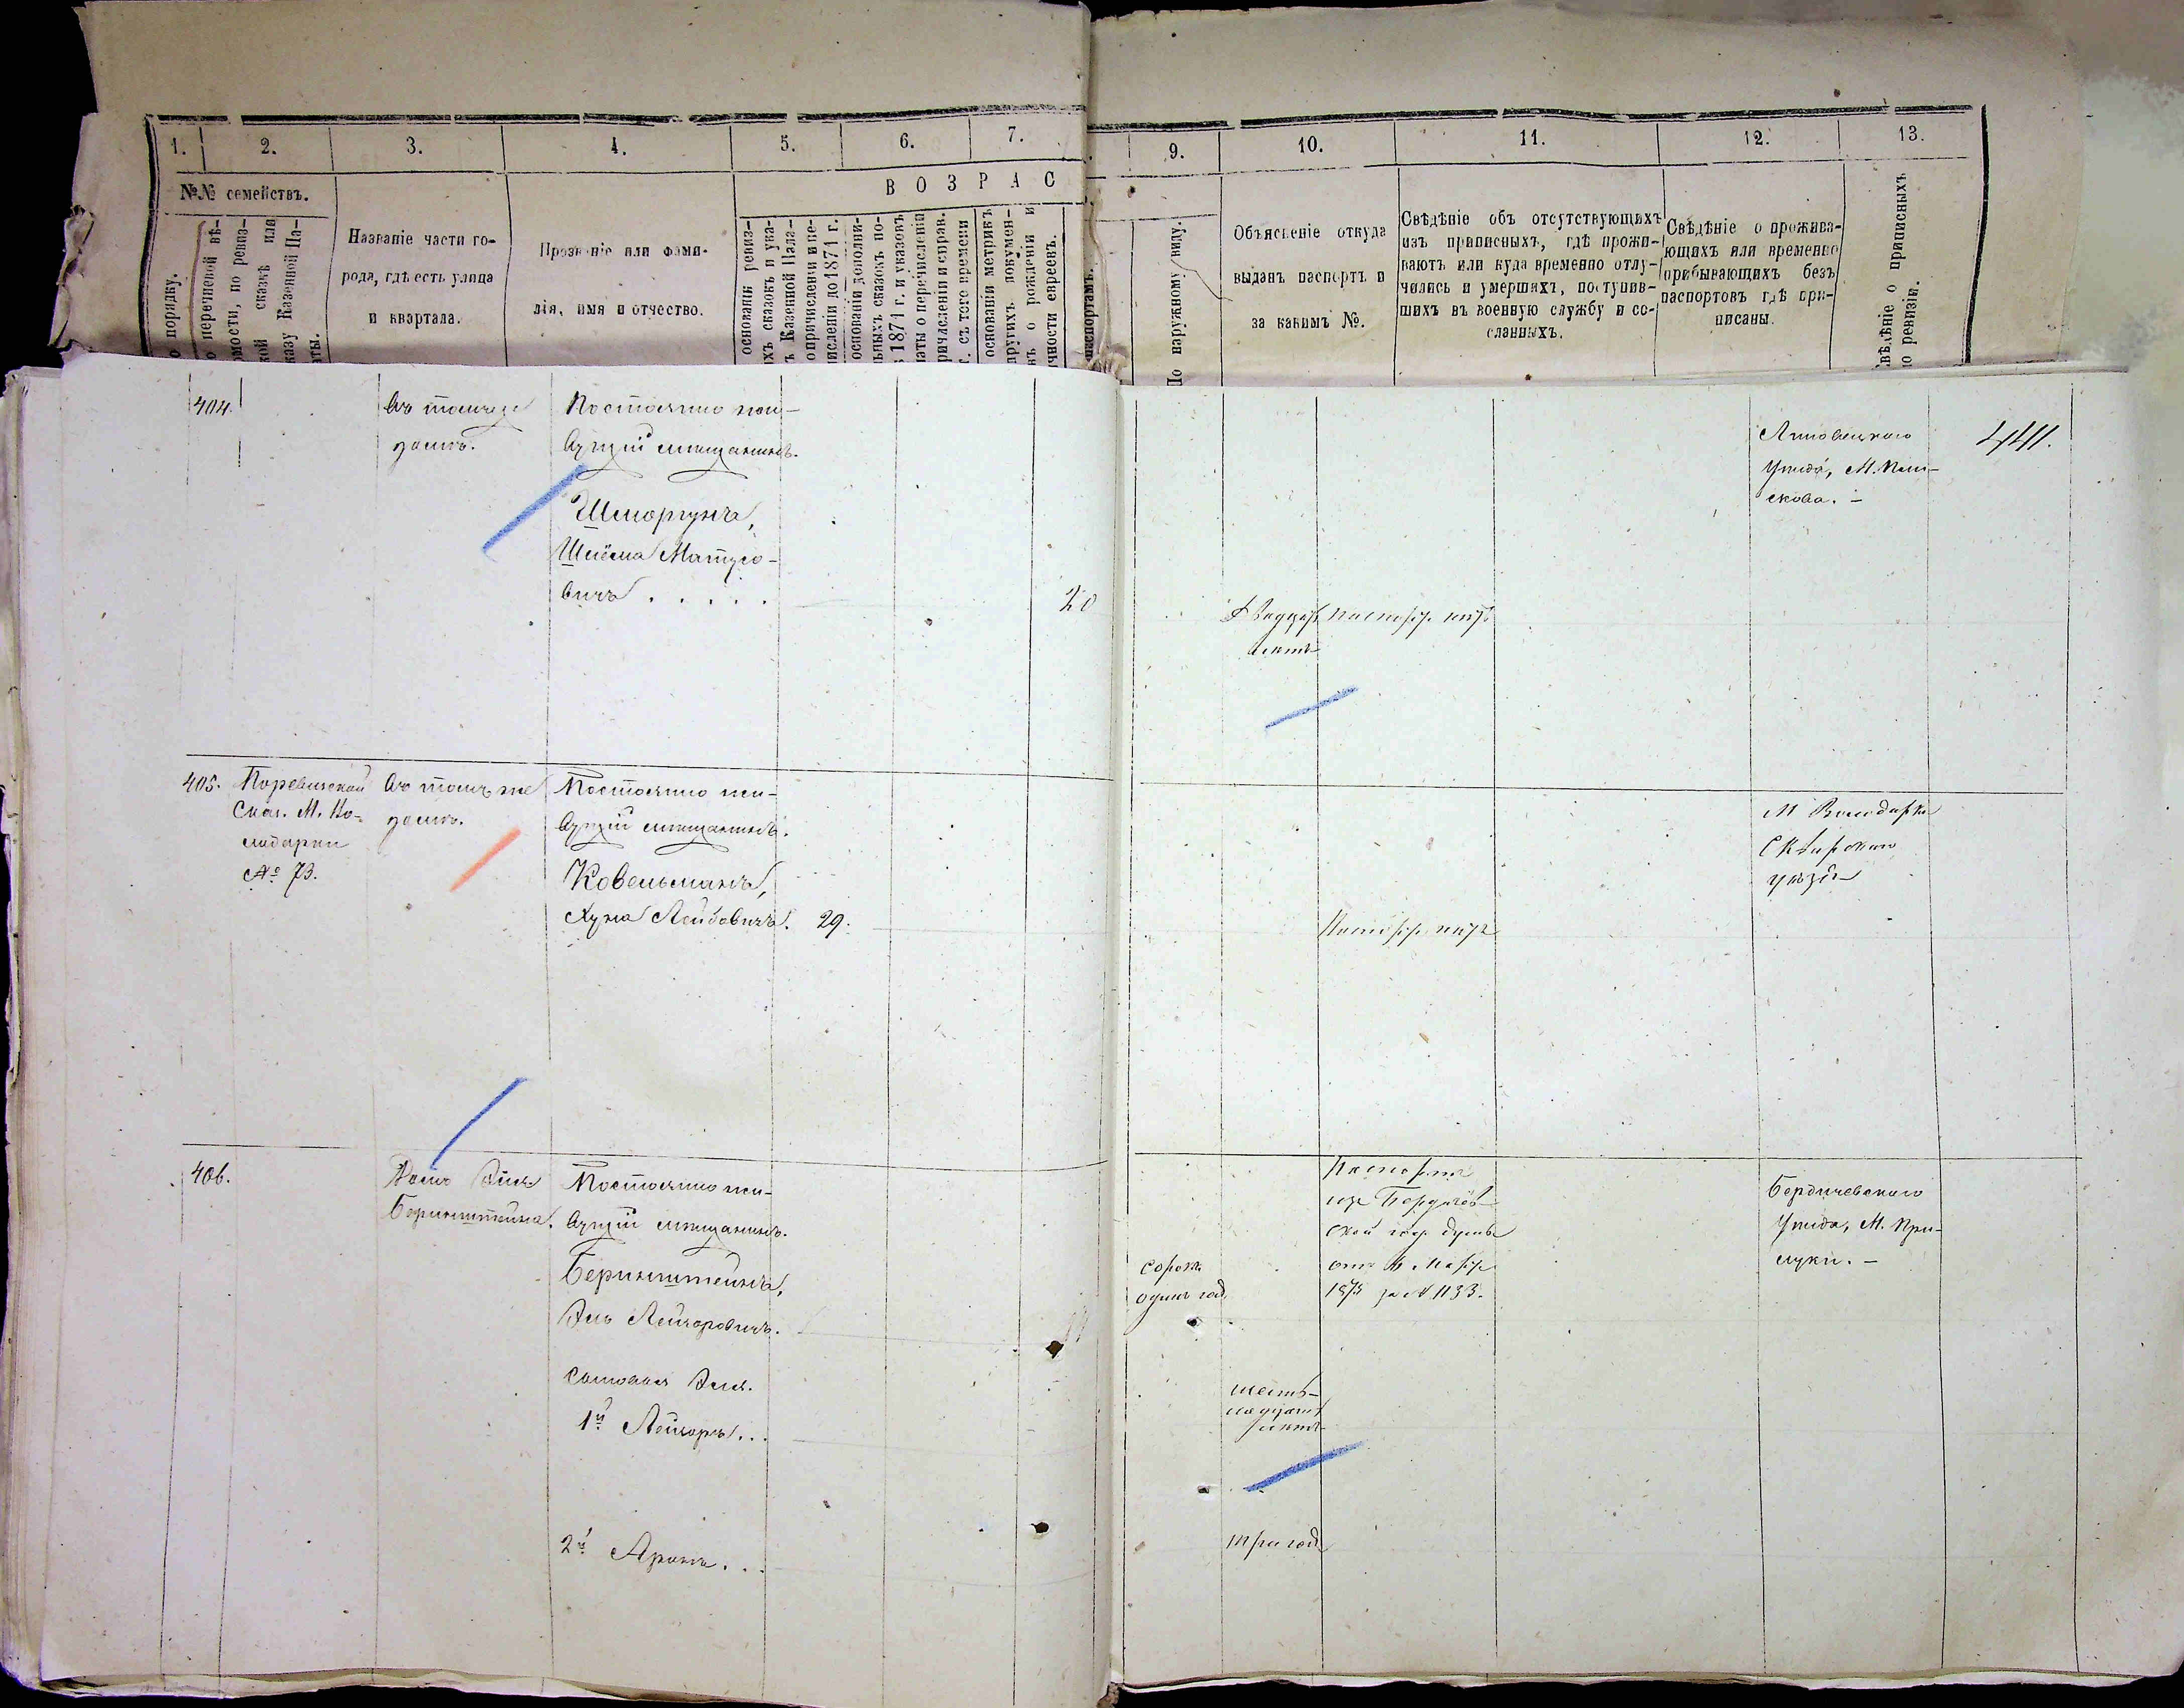 1. 2. 3. 4. 5. 6. 7.
№№ семействъ.
ВОЗРАС
о порядку.
о перечневой вѣ-
омости, по ревиз-
кой сказкѣ или
казу Казенной Па-
аты.
Названіе части го-
рода, гдѣ есть улица
и квартала.
Прозваніе или фами-
лія, имя и отчество.
основаніи ревиз-
ихъ сказокъ и ука-
ъ Казенной Пала-
о причисленіи и пе-
численіи до 1871 г.
основаніи дополни-
льныхъ сказокъ по-
1871 г. и указовъ
латы о перечисленіи
ричисленіи и справ.
г. съ того времени
основаніи метрикъ
другихъ докумен-
ъ о рожденіи и
чности евреевъ.
паспортамъ.
9. 10. 11. 12. 13.
По наружному виду.
Объясненіе откуда
выданъ паспортъ и
за какимъ №.
Свѣдѣніе объ отсутствующихъ
изъ приписныхъ, гдѣ прожи-
ваютъ или куда временно отлу-
чились и умершихъ, поступив-
шихъ въ военную службу и со-
сланныхъ.
Свѣдѣніе о прожива-
ющихъ или временно
прибывающихъ безъ
паспортовъ гдѣ при-
писаны.
вѣдѣніе о приписныхъ
о ревизіи.
404.
Въ томъ же
домѣ.
Постоянно жи-
вущій мѣщанинъ.
Шморгунъ,
Шлёма Матусо-
вичъ . . . . .
20
Двадцать
лѣтъ
Паспорт. нѣтъ
Липовецкаго
Уѣзда, М. Пли-
скова. –
441.
405.
Поревизской
Сказ. М. Во-
лодарки
№ 73.
Въ томъ же
домѣ.
Постоянно жи-
вущій мѣщанинъ.
Ковельманъ,
Хуна Лейбовичъ. 29.
Паспорт. нѣтъ
М Володарки
Сквирскаго
уѣзда
406.
Домъ Эля
Беринштейна.
Постоянно жи-
вущій мѣщанинъ.
Беринштейнъ,
Эль Лейзоровичъ.
сорокъ
одинъ год.
Паспортъ
изъ Бердичев-
ской гор. думы
1875 за № 1133.
Бердичевскаго
Уѣзда, М. При-
луки. –
Сыновья Эля.
1й Лейзоръ . . .
шест-
надцать
лѣтъ
2й Аронъ . . .
три года